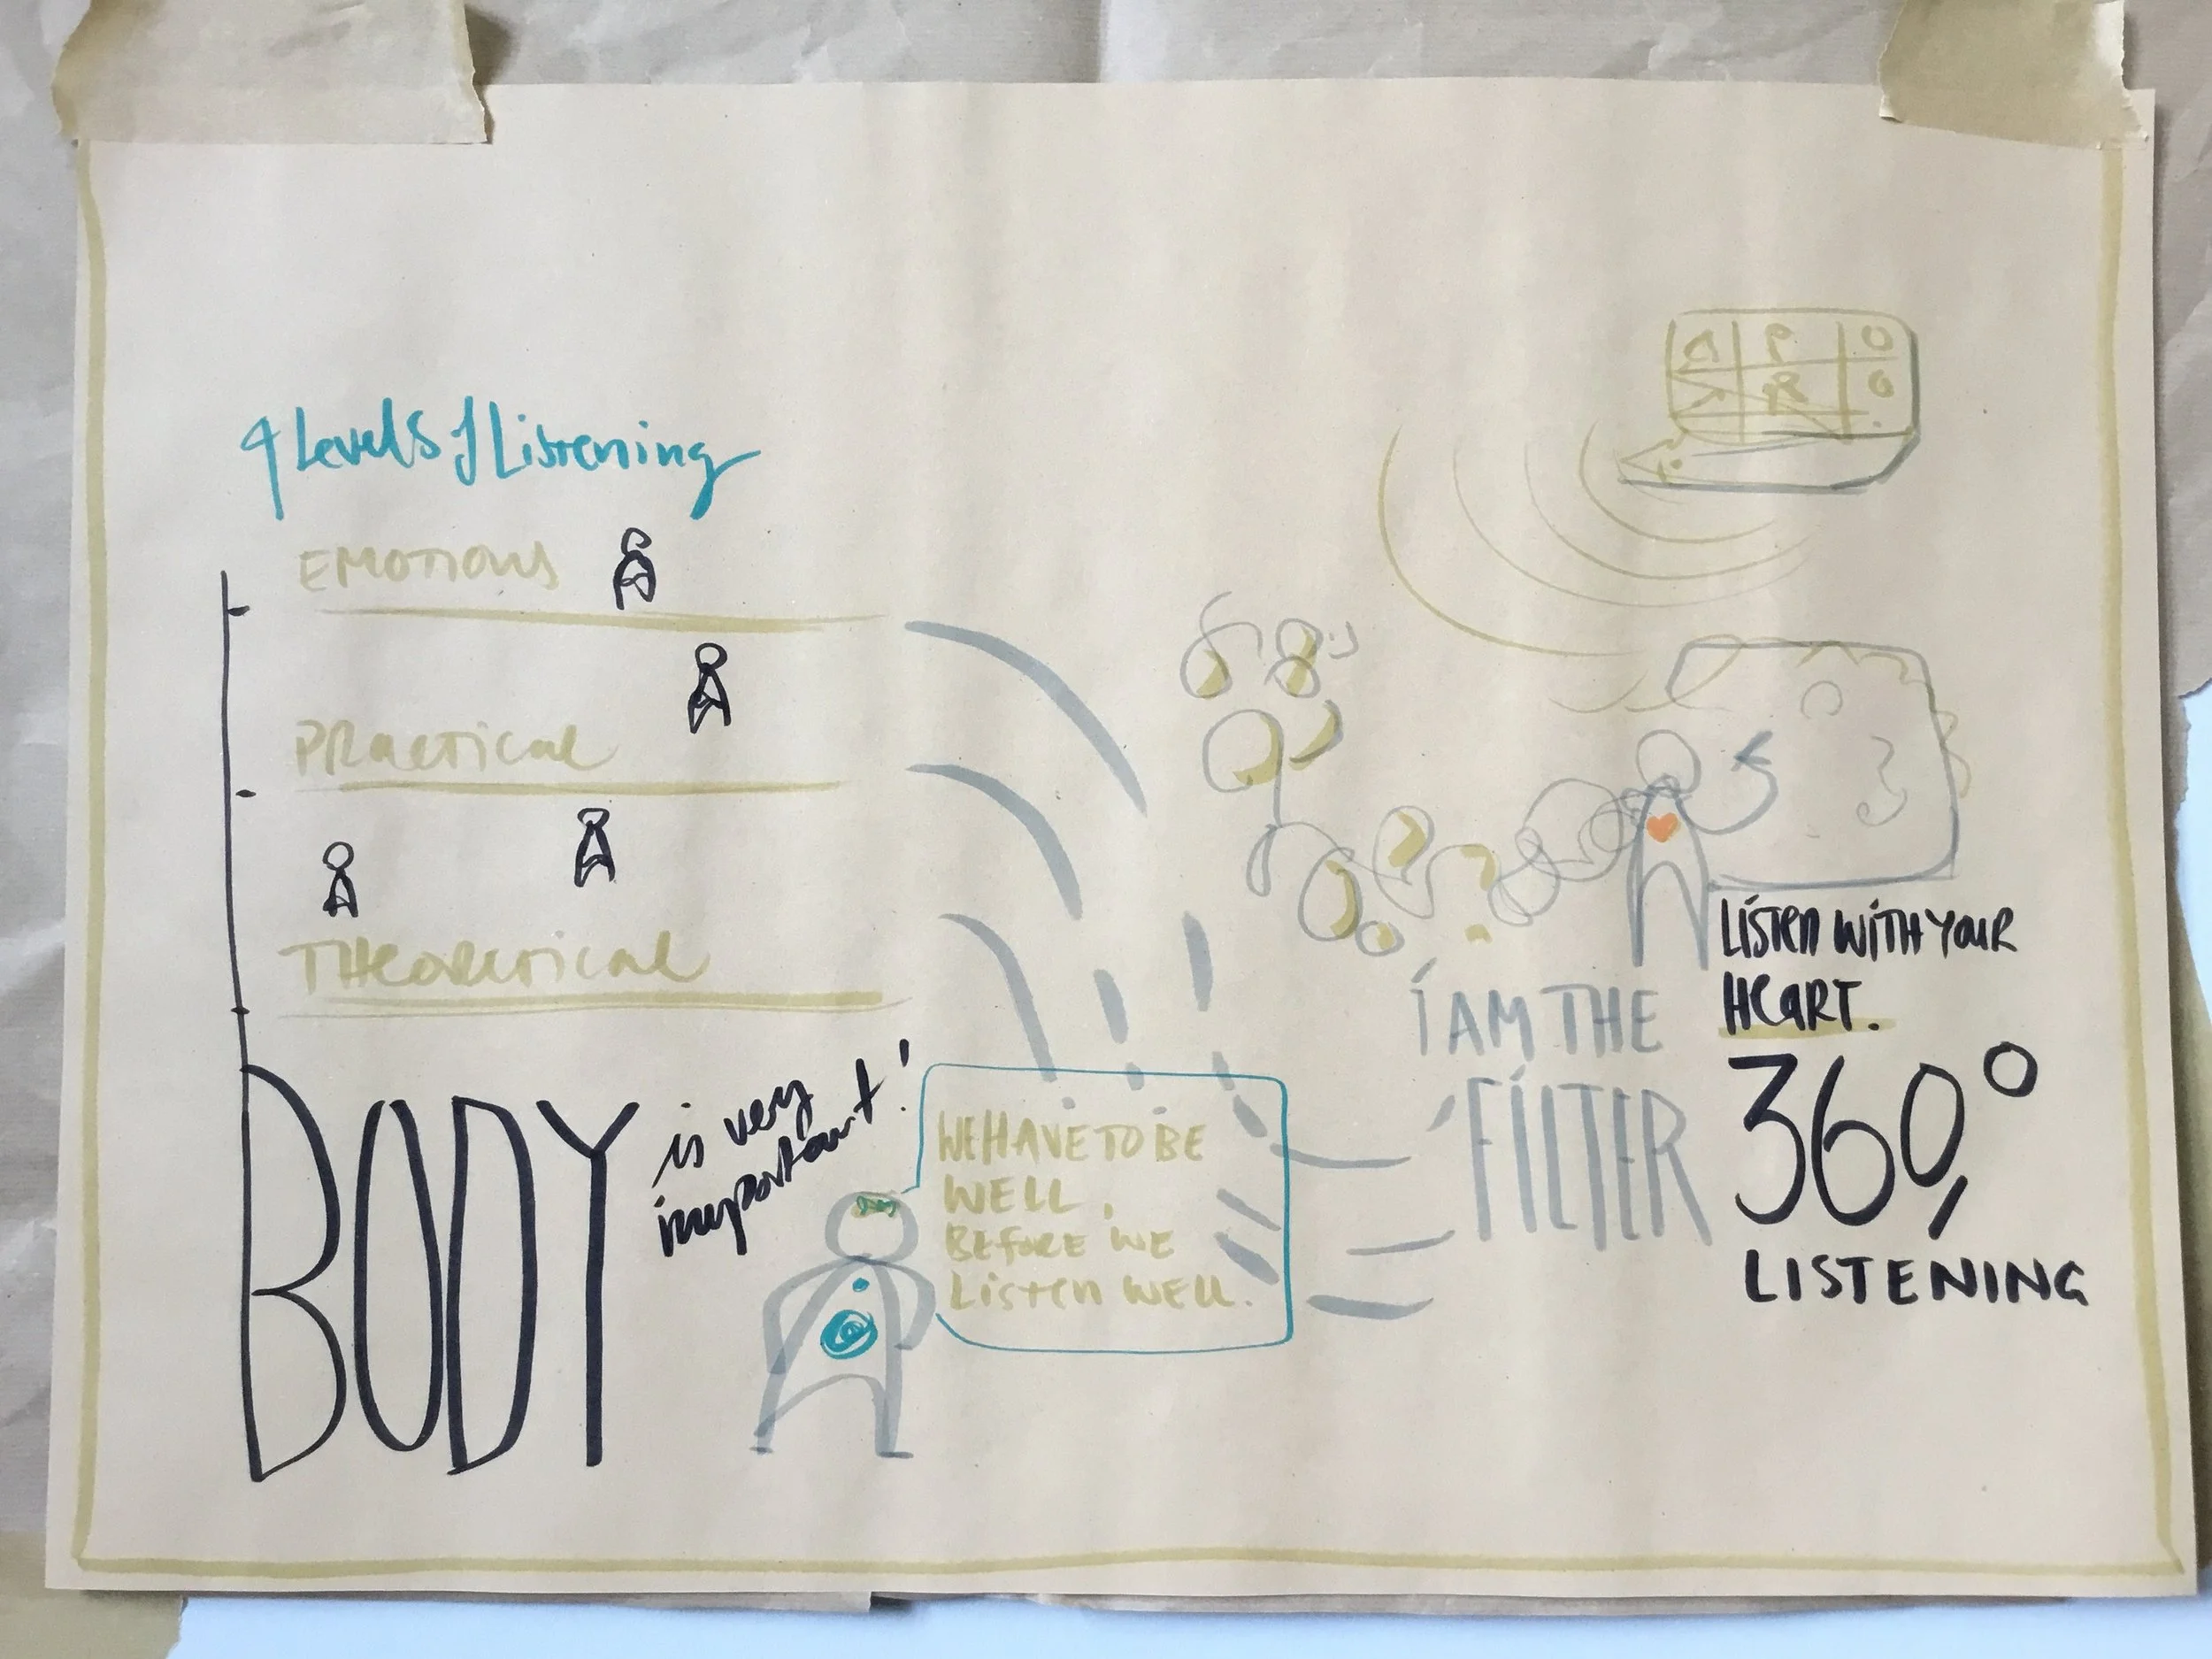 4 Levels of Listening
EMOTIONS
PRACTICAL
THEORETICAL
BODY
is very
important!
WE HAVE TO BE
WELL,
BEFORE WE
Listen WELL.
I AM THE
FILTER
LISTEN WITH YOUR
HEART.
360°
LISTENING